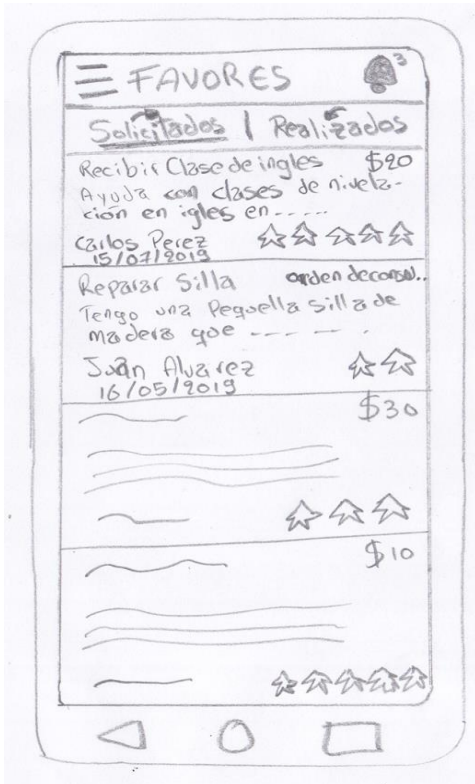 FAVORES 3
Solicitados | Realizados
Recibir Clase de ingles $20
Ayuda con clases de nivela-
ción en igles en - - - - -
Carlos Perez
15/07/2019
Reparar Silla
Tengo una Pequeña silla de
madera que - - - - - -
Juan Alvarez
16/05/2019
$30
$10